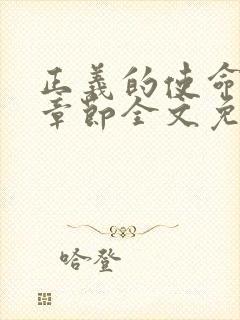 正义的使命
章节全文免
哈登